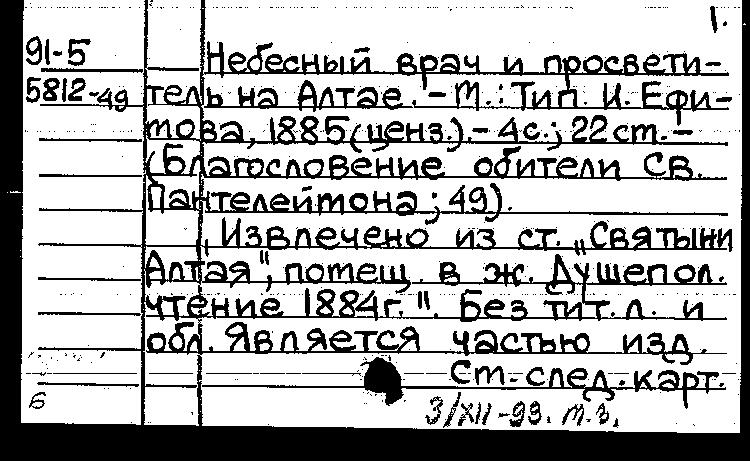 1.
91-5 Небесный врач и просвети-
5812-49 тель на Алтае. - М.: Тип. И. Ефи-
мова, 1885 (ценз.). - 4 с.; 22 ст. -
(Благословение обители св.
Пантелеймона; 49).
„Извлечено из ст. „Святыни
Алтая", помещ. в ж. Душепол.
чтение 1884г.". Без тит. л. и
обл. Является частью изд.
См. след. карт.
Б
3/XII-93. т.з.